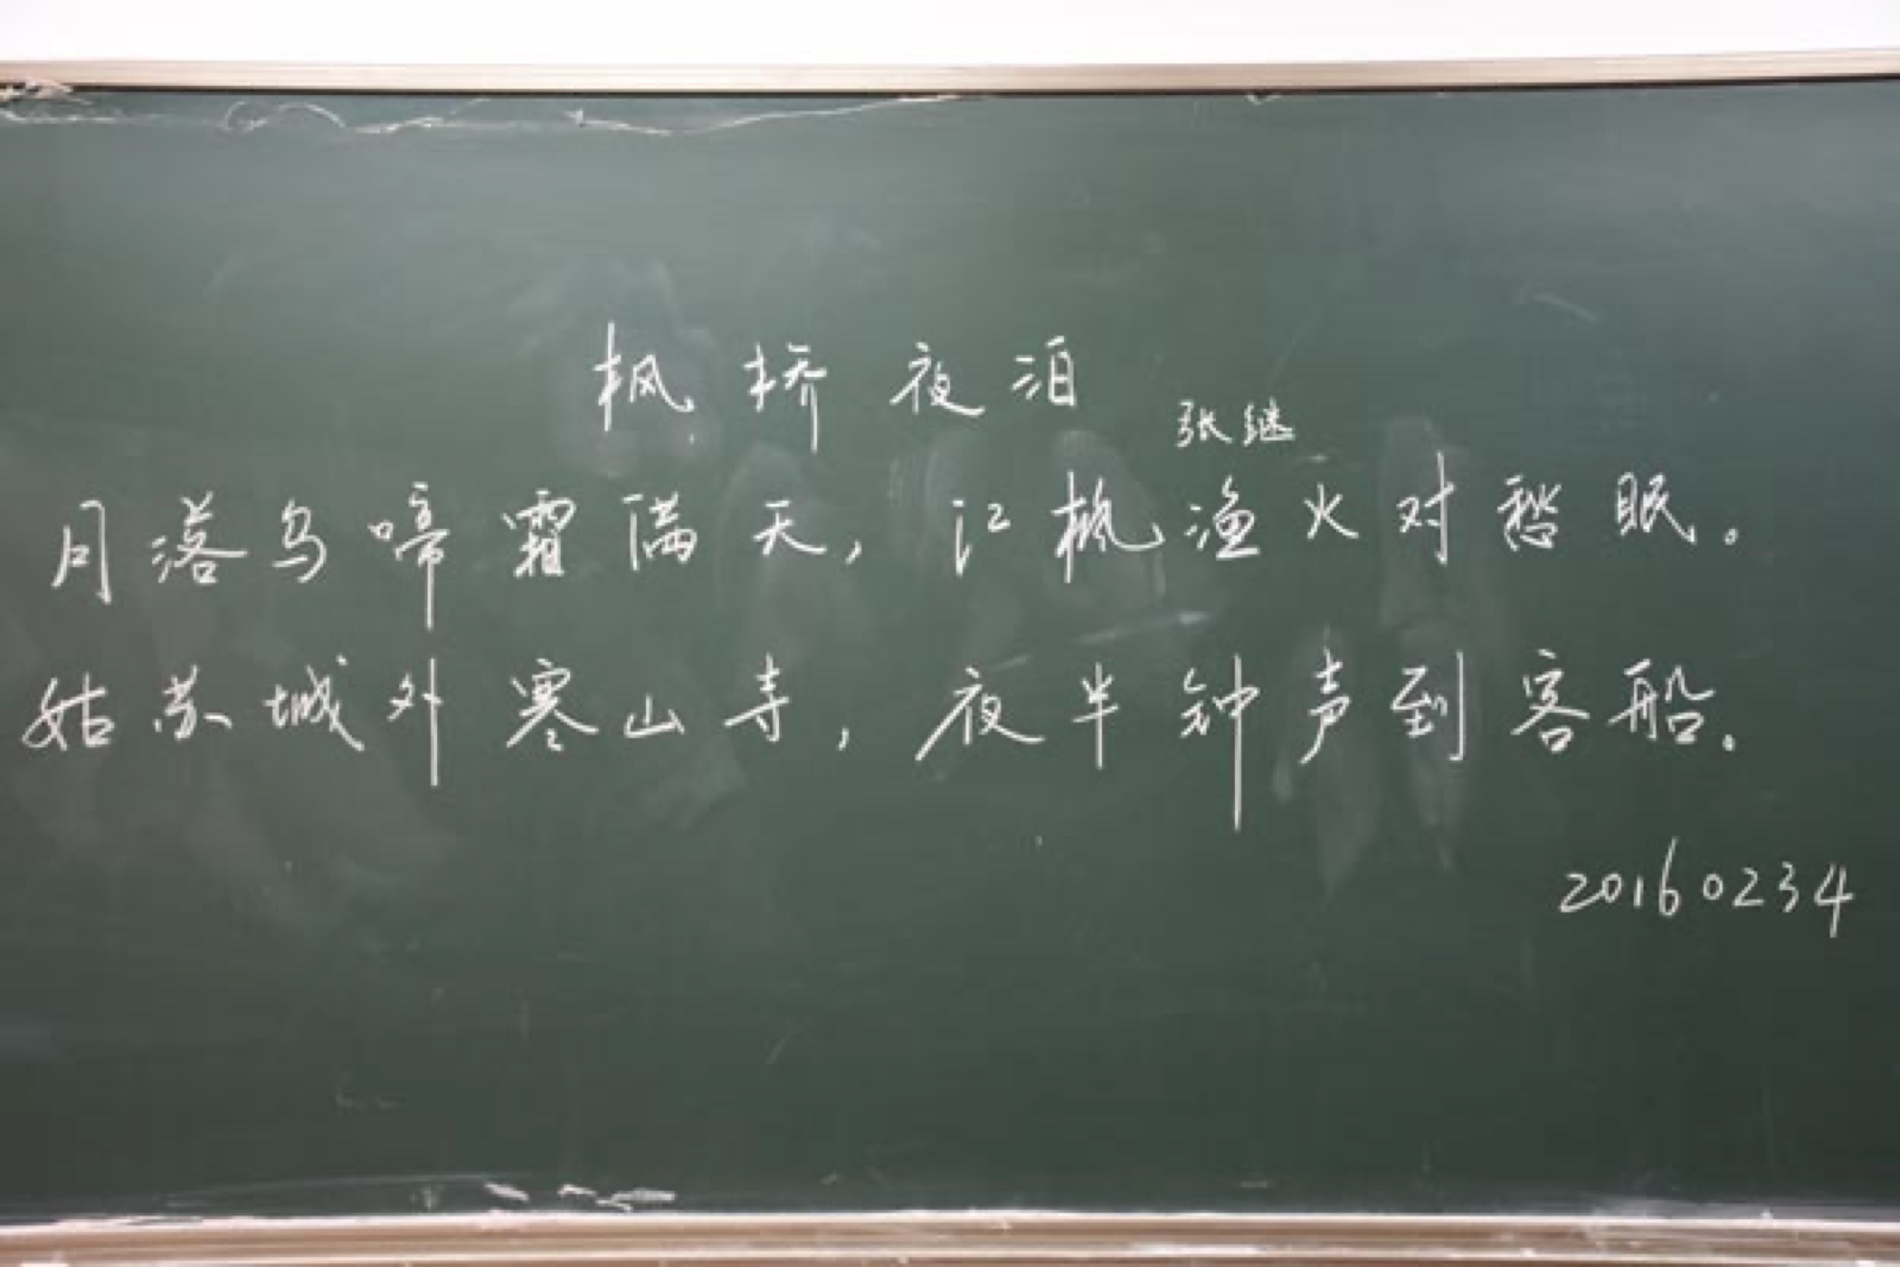 枫桥夜泊
张继
月落乌啼霜满天，江枫渔火对愁眠。
姑苏城外寒山寺，夜半钟声到客船。
20160234